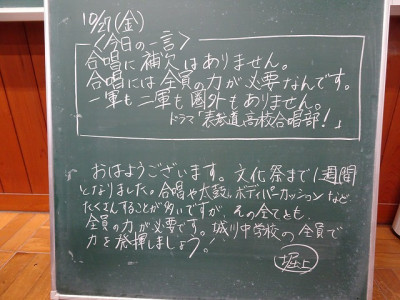 10/27(金)
<今日の一言>
合唱に補欠はありません。
合唱には全員の力が必要なんです。
一軍も二軍も圏外もありません。
ドラマ「表参道高校合唱部!」
おはようございます。文化祭まで1週間
となりました。合唱や太鼓、ボディパーカッションなど
たくさんすることが多いですが、その全てとも、
全員の力が必要です。城川中学校の全員で
力を発揮しましょう!
堀上